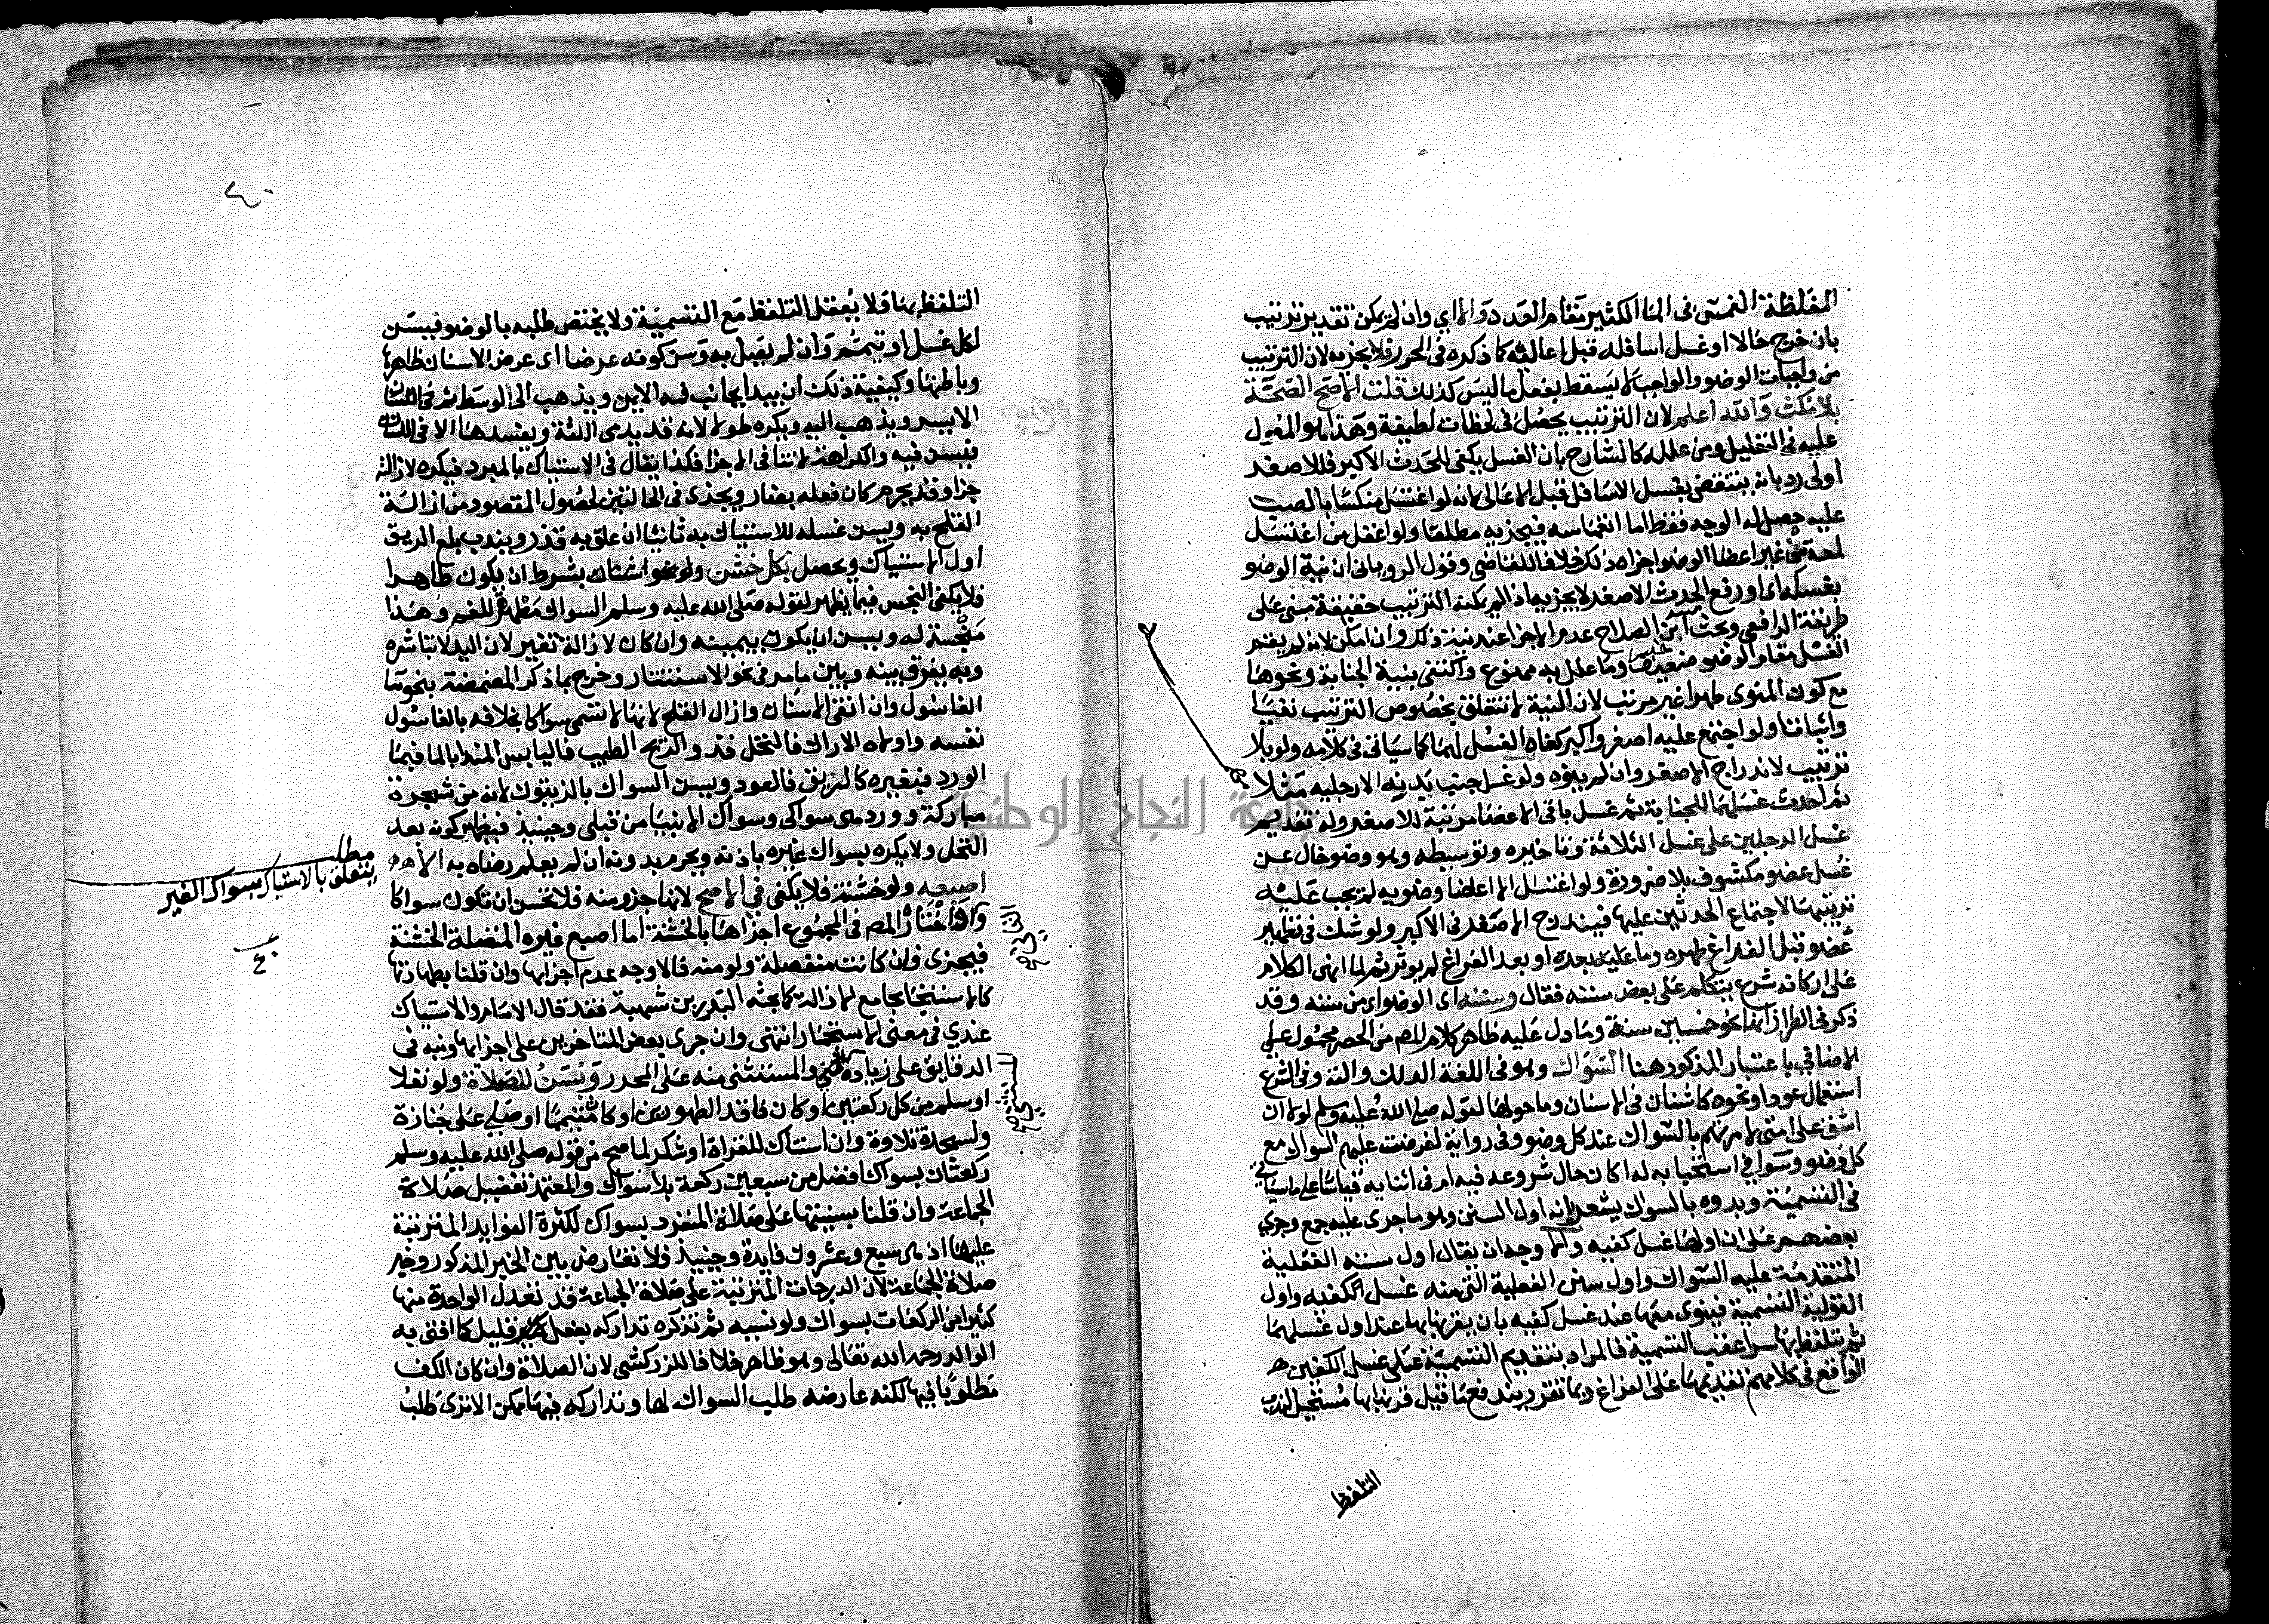 المغلظة الغمس في الماء الكثير مقام العدد والا اي وان لم يمكن تقدير ترتيب
بان خرج حالا او غسل اسافله قبل اعاليه كما ذكره في المحرر فلا يجزيه لان الترتيب
من واجبات الوضوء والواجب لا يسقط بفعل ما ليس كذلك قلت الاصح الصحة
بلا مكث والله اعلم لان الترتيب يحصل في لحظات لطيفة وهذا هو المعول
عليه في التعليل ومن علله كالشارح بان الغسل يكفي للحدث الاكبر فللاصغر
اولى رد بانه ينتقض بغسل الاسافل قبل الاعالي لانه لو اغتسل منكسا بالصب
عليه حصل له الوجه فقط اما انغماسه فيجزيه مطلقا ولو اغفل من اغتسل
لمعة من غير اعضا الوضو اجزاه ذلك خلافا للقاضي وقول الروياني ان نية الوضو
بغسله اي او رفع الحدث الاصغر لا يجزيه اذ لم يمكنه الترتيب حقيقة مبني على
طريقة الرافعي وبحث ابن الصلاح عدم الاجزا عند نية ذلك وان امكن لانه لم يقم
الغسل مقام الوضو ضعيف وما علل به ممنوع واكتفى بنية الجنابة ونحوها
مع كون المنوي طهرا غير مرتب لان النية لا تتعلق بخصوص الترتيب نفيا
واثباتا ولو اجتمع عليه اصغر واكبر كفاه الغسل لهما كما سياتي في كلامه ولو بلا
ترتيب لاندراج الاصغر وان لم ينوه ولو غسل جنب بدنه الا رجليه مثلا
ثم احدث غسلهما للجنابة ثم غسل باقي الاعضا مرتبة للاصغر وله تقديم
غسل الرجلين على غسل الثلاثة وتاخيره وتوسيطه وهو وضو خال عن
غسل عضو مكشوف بلا ضرورة ولو اغتسل الا اعضا وضويه لم يجب عليه
ترتيبها لاجتماع الحدثين عليها فيندرج الاصغر في الاكبر ولو شك في تطهير
عضو قبل الفراغ طهره وما عليه بعده او بعد الفراغ لم يوثر ثم لما انهى الكلام
على اركانه شرع يتكلم على بعض سننه فقال وسننه اي الوضو اي من سننه وقد
ذكر في الطراز انها نحو خمسين سنة وما دل عليه ظاهر كلام المص من الحصر محمول على
الاضافي باعتبار المذكور هنا السواك وهو في اللغة الدلك والته وفي الشرع
استعمال عود او نحوه كاشنان في الاسنان وما حولها لقوله صلى الله عليه وسلم لولا ان
اشق على امتي لامرتهم بالسواك عند كل وضو وفي رواية لفرضت عليهم السواك مع
كل وضو وسواء في استحبابه له اكان حال شروعه فيه ام في اثنايه قياسا على ما سياتي
في التسمية وبدوه بالسواك يشعر بانه اول السنن وهو ما جرى عليه جمع وجرى
بعضهم على ان اولها غسل كفيه والاوجه ان يقال اول سننه الفعلية
المتقدمة عليه السواك واول سنن الفعلية التي منه غسل الكفيه واول
القولية التسمية فينوي معها عند غسل كفيه بان يقرنها بها عند اول غسلهما
ثم يتلفظ بها سرا عقب التسمية فالمراد بتقديم التسمية على غسل الكفين
الواقع في كلامهم تقديمها على الفراغ وبما تقرر يندفع ما قيل قرنها بها مستحيل لندب
التلفظ
٤٠
التلفظ بها فلا يعقل التلفظ مع التسمية ولا يختص طلبه بالوضو فيسن
لكل غسل او تيمم وان لم يقبل به وسن كونه عرضا اي عرض الاسنان ظاهرها
وباطنها وكيفية ذلك ان يبدا بجانب فيه الايمن ويذهب الى الوسط ثم
الايسر ويذهب اليه ويكره طولا لانه قد يدمي اللثة ويفسدها الا في اللسان
فيسن فيه والكراهة لا تنافي الاجزا فلذا يقال في الاستياك بالمبرد فيكره لازالته
جزا وقد يحرم كان فعله بضار ويجزى في الحالتين لحصول المقصود من ازالة
القلح به ويسن غسله للاستياك به ثانيا ان علق به قذر ويندب بلع الريق
اول الاستياك ويحصل بكل خشن ولو نحو اشنان بشرط ان يكون طاهرا
فلا يكفي النجس فيما يظهر لقوله صلى الله عليه وسلم السواك مطهرة للفم وهذا
منجسة له ويسن ان يكون بيمينه وان كان لازالة تغير لان اليد لا تباشره
وبه يفرق بينه وبين ما مر في نحو الاستنثار وخرج بما ذكر المضمضة بنحو ما
الغاسول وان انقى الاسنان وازال القلح لانها لا تسمى سواكا بخلافه بالغاسول
نفسه واولاه الاراك فالنخل فذو الريح الطيب فاليابس المندا بالما فبما
الورد فبغيره كالريق فالعود ويسن السواك بالزيتون لانه من شجرة
مباركة وورد هي سواكي وسواك الانبيا من قبلي وحينيذ فيظهر كونه بعد
النخل ولا يكره بسواك غيره باذنه ويحرم بدونه ان لم يعلم رضاه به الا
اصبعه ولو خشنة فلا يكفي في الاصح لانها جزو منه فلا تحسن ان تكون سواكا
واختار المص في المجموع اجزاها بالخشنة اما اصبع غيره المتصلة الخشنة
فيجزى فان كانت منفصلة ولو منه فالاوجه عدم اجزايها وان قلنا بطهارتها
كالاستنجا بجامع الازالة كما بحثه البدر بن شهبة فقد قال الامام والاستياك
عندي في معنى الاستجمار انتهى وان جرى بعض المتاخرين على اجزايها ونبه في
الدقايق على زيادة والمستثنى منه على المحرر ويسن للصلاة ولو نفلا
او سلم من كل ركعتين او كان فاقد الطهورين او كا متيمما او صلى على جنازة
ولسجدة تلاوة وان استاك للقراة او شكر لما صح من قوله صلى الله عليه وسلم
ركعتان بسواك افضل من سبعين ركعة بلا سواك والمعتمد تفضيل صلاة
الجماعة وان قلنا بسنيتها على صلاة المنفرد بسواك لكثرة الفوايد المترتبة
عليها اذ هي سبع وعشرون فايدة وحينيذ فلا تعارض بين الخبر المذكور وخبر
صلاة الجماعة لان الدرجات المترتبة على صلاة الجماعة قد تعدل الواحدة منها
كثيرا من الركعات بسواك ولو نسيه ثم تذكره تداركه بفعل قليل كما افتى به
الوالد رحمه الله تعالى وهو ظاهر خلافا للزركشي لان الصلاة وان كان الكف
مطلوبا فيها لكنه عارضه طلب السواك لها وتداركه فيها ممكن الا ترى طلب
مطلب
يتعلق بالاستياك بسواك الغير
٤٠
جامعة النجاح الوطنية